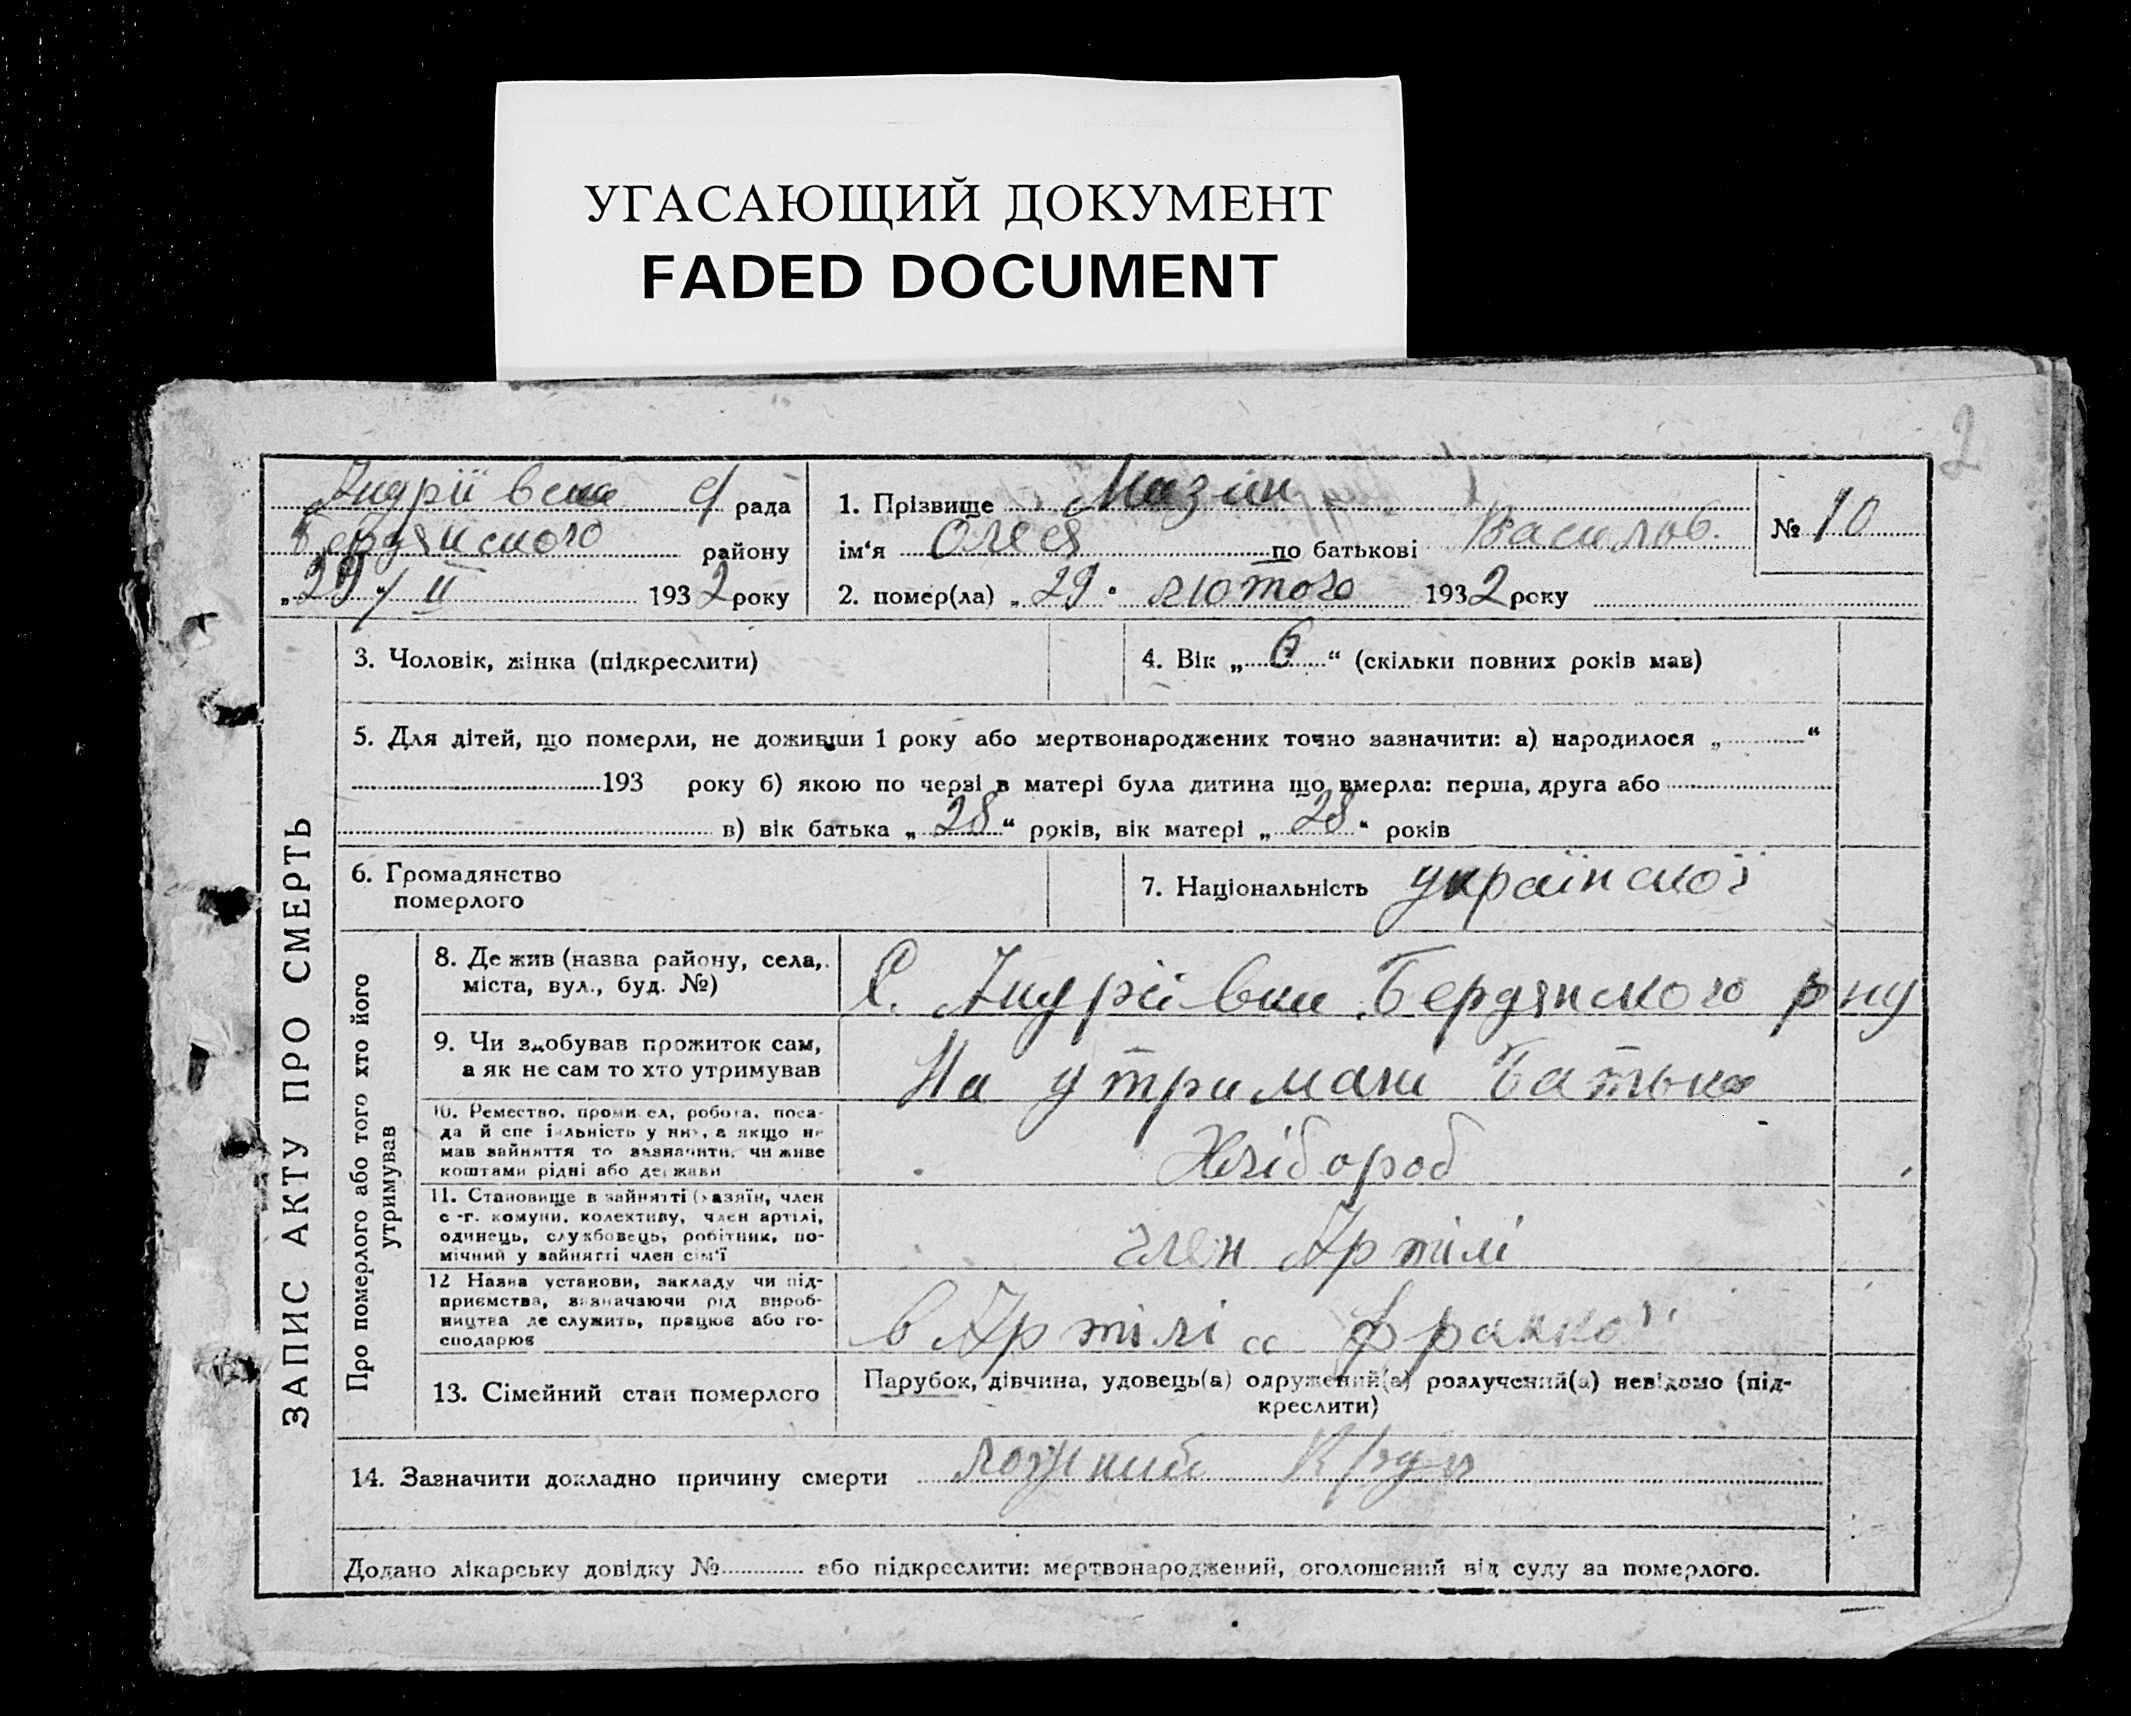 УГАСАЮЩИЙ ДОКУМЕНТ
FADED DOCUMENT
2
Андріївська с/рада
Бердянського району
„29/II 1932 року
1. Прізвище Мазін
ім'я Олєя по батькові Василов.
2. помер(ла) „29" лютого 1932 року
№ 10
ЗАПИС АКТУ ПРО СМЕРТЬ
3. Чоловік, жінка (підкреслити)
4. Вік „6“ (скільки повних років мав)
5. Для дітей, що померли, не доживши 1 року або мертвонароджених точно зазначити: а) народилося „ “
193 року б) якою по черзі в матері була дитина що вмерла: перша, друга або
в) вік батька „28“ років, вік матері „28“ років
6. Громадянство
померлого
7. Національність української
Про померлого або того хто його
утримував
8. Де жив (назва району, села,
міста, вул., буд. №)
С. Андріївки Бердянського рну
9. Чи здобував прожиток сам,
а як не сам то хто утримував
На утримані Батька
10. Ремество, промисел, робота, поса-
да й спеціяльність у них, а якщо не
мав зайняття то зазначити, чи живе
коштами рідні або держави
Хлібороб
11. Становище в зайнятті (хазяїн, член
с-г. комуни, колективу, член артілі,
одинець, службовець, робітник, по-
мічний у зайнятті член сім'ї
член Артілі
12 Назва установи, закладу чи під-
приємства, зазначаючи рід вироб-
ництва де служить, працює або го-
сподарює
в Артілі
13. Сімейний стан померлого
Парубок, дівчина, удовець(а) одружений(а) розлучений(а) невідомо (під-
креслити)
14. Зазначити докладно причину смерти
Додано лікарську довідку № або підкреслити: мертвонароджений, оголошений від суду за померлого.